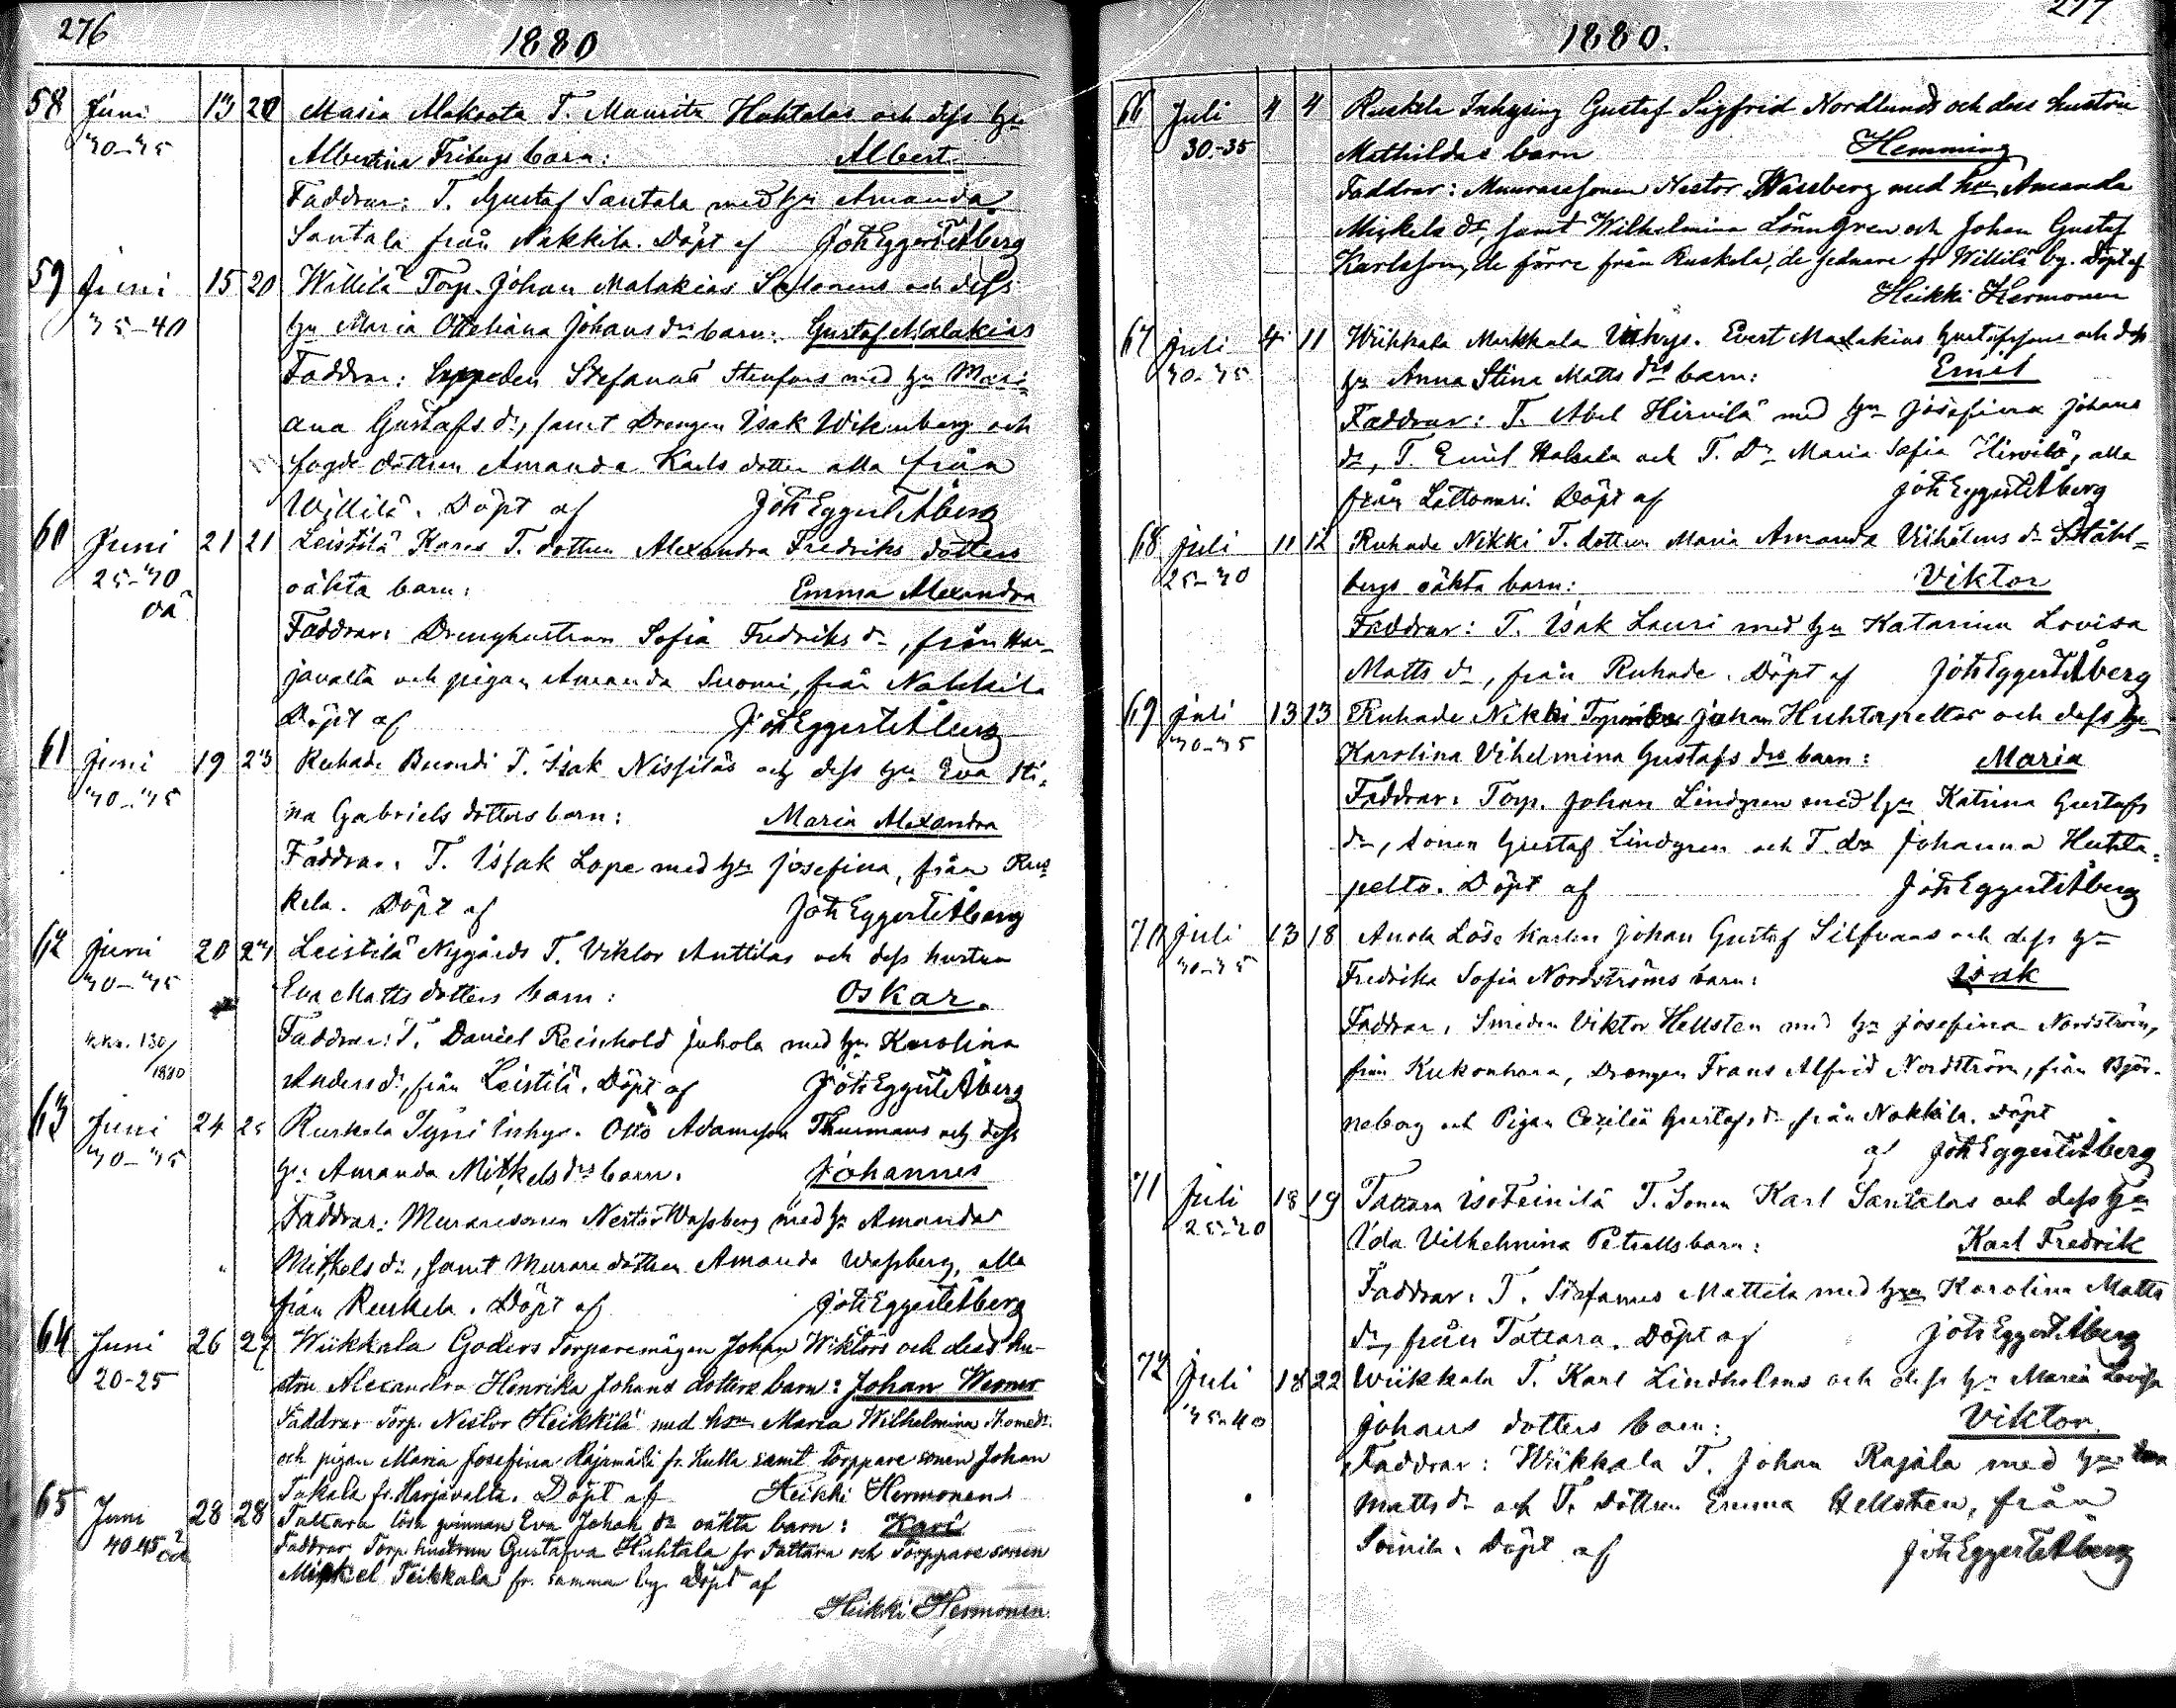 276
1880
58 Juni 13 20 Maria Makoota T. Mauritz Huhtalas och dess hu
30-35 Albertina Fribergs barn: Albert
Faddrar: T. Gustaf Santala med hu Amanda
Santala från Nakkila. Döpt af Joh Eggert Åberg
59 Juni 15 20 Willilä Torp. Johan Malakias Salonens och dess
35-40 hu Maria Otteliana Johans drs barn: Gustaf Malakias
Faddrar: Stefanus Stenfors med hu Mari-
ana Gustafs dr, samt Drengen Isak Wikenberg och
fogde dottren Amanda Karls dotter alla från
Willilä. Döpt af Joh Eggert Åberg
60 Juni 21 21 Leistilä Kares T. dottren Alexandra Fredriks dotters
25-30 oäkta barn: Emma Alexandra
oä
Faddrar: Drenghustrun Sofia Fredriks dr, från Har-
javalta och pigan Amanda Suomi, från Nakkila
Döpt af Joh Eggert Åberg
61 Juni 19 23 Ruhade Buondi T. Isak Nissiläs och dess hu Eva Sti-
30-35 na Gabriels dotters barn: Maria Alexandra
Faddrar: T. Issak Lope med hu Josefina, från Rus
kela. Döpt af Joh Eggert Åberg
62 Juni 20 23 Leistilä Nygårds T. Viktor Anttilas och dess hustru
30-35 Eva Matts dotters barn: Oskar.
Faddrar: T. Daniel Reinhold Juhola med hu Karolina
130/1880 Anders dr, från Leistilä. Döpt af Joh Eggert Åberg
63 Juni 24 25 Ruskela Tyni Inhys. Otto Adamsson Thurmans och dess
30-35 hu Amanda Mikkels drs barn. Johannes
Faddrar: Muraresonen Nestor Wassberg med hu Amanda
Mikkels dr, samt Murare dottren Amanda Wassberg, alla
från Ruskela. Döpt af Joh Eggert Åberg
64 Juni 26 27 Wiikkala Goders Torparemågen Johan Wiktors och dess hu-
20-25 stru Alexandra Henrika Johans dotters barn: Johan Werner
Faddrar Torp. Nestor Heikkilä med hu Maria Wilhelmina Thomedr.
och pigan Maria Josefina Rajamäki fr. Kulla samt torppare sonen Johan
Takala fr. Harjavalta. Döpt af Heikki Hermonen
65 Juni 28 28 Tattara lösa qvinnan Eva Johak. dr oäkta barn: Karl
40-45 oä
Faddrar Torp. hustrun Gustafva Huhtala fr Tattara och Torppare sonen
Mikkel Teikkala fr. samma by. Döpt af
Heikki Hermonen
277
1880.
66 Juli 4 4 Ruskela Inhysing Gustaf Sigfrid Nordlunds och dess hustru
30-35 Mathildas barn Hemming
Faddrar: Muraresonen Nestor Wassberg med hu Amanda
Mickels dr, samt Wilhelmina Lönngren och Johan Gustaf
Karlsson, de förre från Ruskela, de sednare fr Willilä by. Döpt af
Heikki Hermonen
67 Juli 4 11 Wiikkala Markkala Inhys. Evert Malakias Gustafssons och dess
30-35 hu Anna Stina Matts drs barn: Emil
Faddrar: T. Abel Hirvilä med hu Josefina Johans
dr, T. Emil Halsala och T. Dr Maria Sofia Hirvilä, alla
från Lattomeri. Döpt af Joh Eggert Åberg
68 Juli 11 12 Ruhade Nikki T. dottren Maria Amanda Vilhelms dr Ståhl-
25-30 bergs oäkta barn: Viktor
Faddrar: T. Isak Lauri med hu Katarina Lovisa
Matts dr, från Ruhade. Döpt af Joh Eggert Åberg
69 Juli 13 13 Ruhade Nikki Johan Huhtapeltos och dess hu
30-35 Karolina Vihelmina Gustafs drs barn: Maria
Faddrar: Torp. Johan Lindgren med hu Katrina Gustafs
dr, sonen Gustaf Lindgren och T. dr Johanna Huhta-
pelto. Döpt af Joh Eggert Åberg
70 Juli 13 18 Anola Löse karlen Johan Gustaf Silfvans och dess hu
30-35 Fredrika Sofia Nordströms barn: Isak
Faddrar: Smeden Viktor Hellsten med hu Josefina Nordström,
från Kukonhara, Drengen Frans Alfrid Nordström, från Björ-
neborg och Pigan Cecilia Gustafs dr från Nakkila. Döpt
af Joh Eggert Åberg
71 Juli 18 19 Tattara IsoTeinilä T. Sonen Karl Santalas och dess hu
25-30 Ida Vilhelmina Petrells barn: Karl Fredrik
Faddrar: T. Stefanus Mattila med hu Karolina Matts
dr, från Tattara. Döpt af Joh Eggert Åberg
72 Juli 18 22 Wiikkala T. Karl Lindholms och dess hu Maria Lovisa
35-40 Johans dotters barn: Viktor
Faddrar: Wiikkala T. Johan Rajala med hu
Matts dr och T. dottren Emma Hellsten, från
Soinila. Döpt af Joh Eggert Åberg